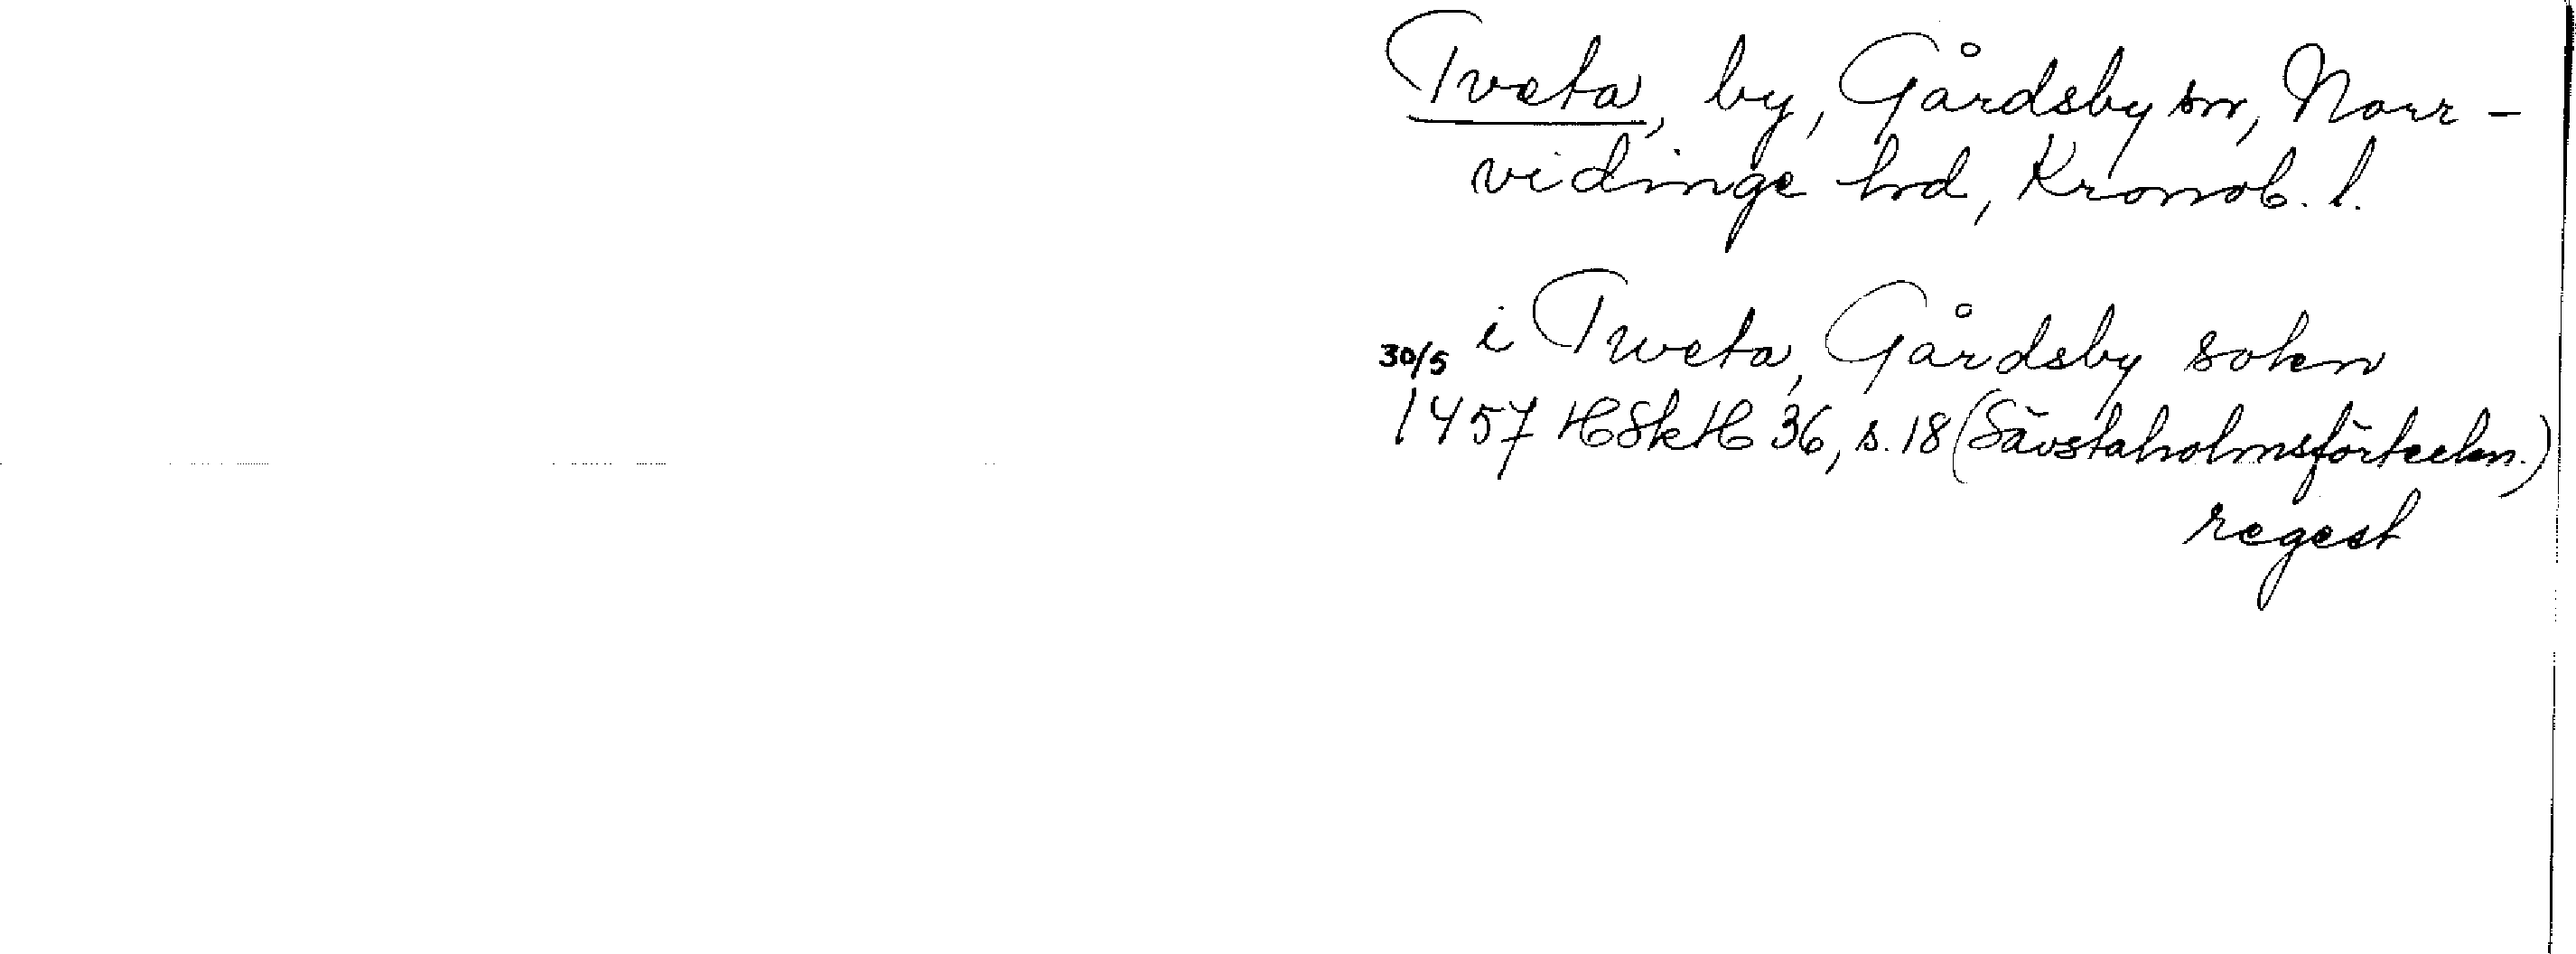 Tveta, by, Gårdsby sn, Norr-
vidinge hd, Kronob. l.
i Tweta, Gårdsby sokn
30/5
1457 HSkH 36, s. 18 (Sävstaholmsförteckn.)
regest